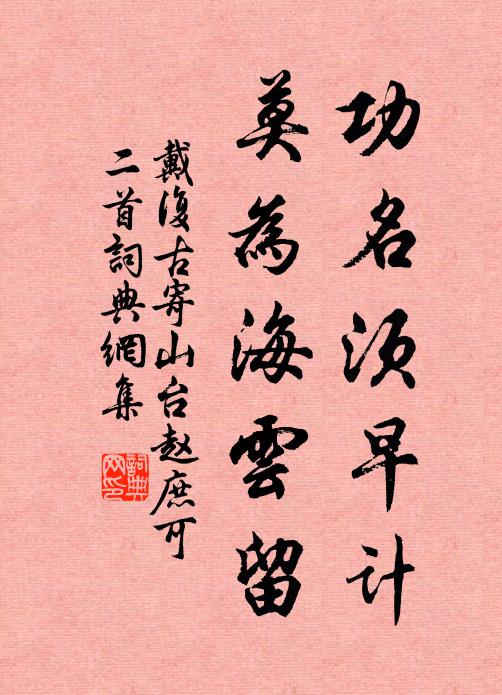 功名须早计
莫為海雲留
戴復古寄山台赵庶可
二首詞典網集
詞典
网印